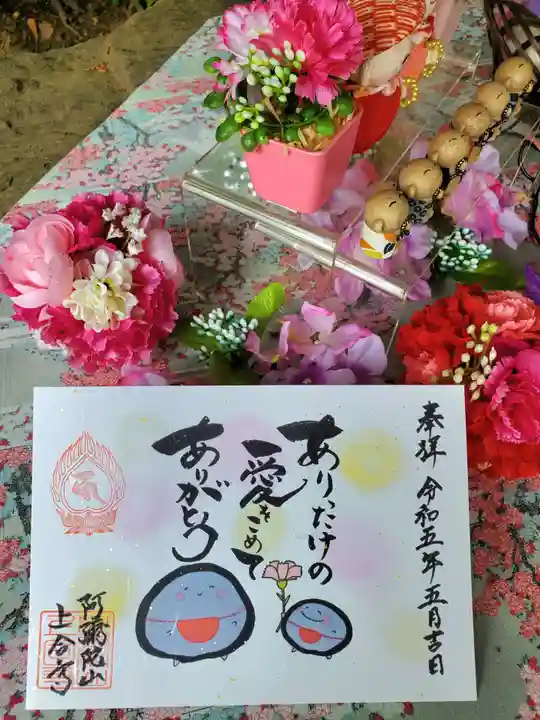 奉拝 令和五年五月吉日
ありったけの
愛をこめて
ありがとう
阿弥陀山